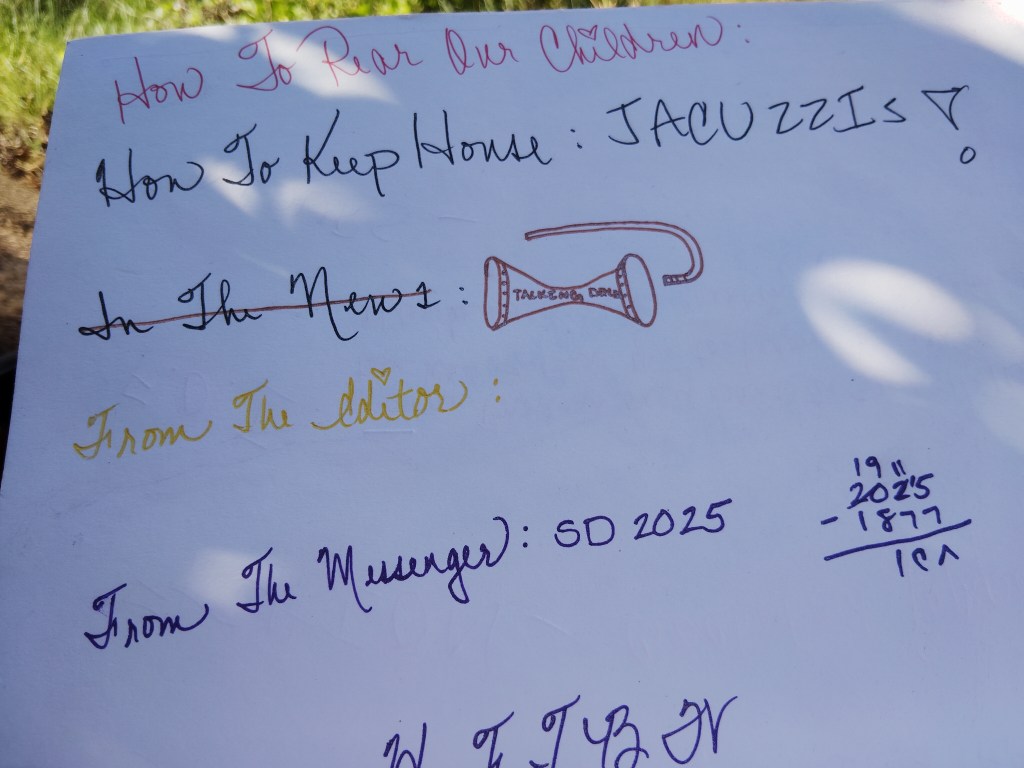 How To Rear Our Children:
How To Keep House: JACUZZIs
In The News:
TALKING DRUM
From The Editor:
From The Messenger: SD 2025
19 11
2025
- 1877